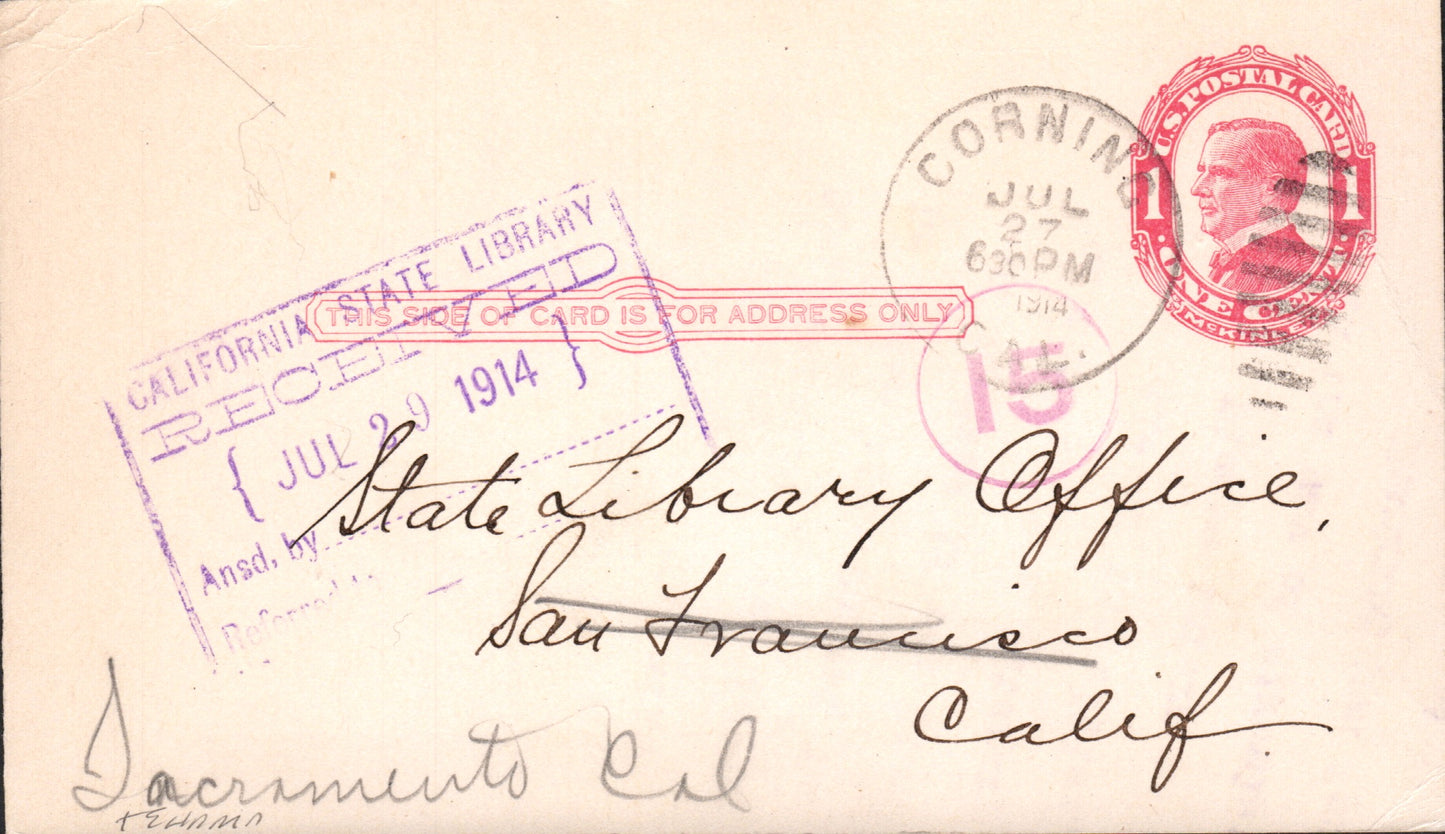 U.S. POSTAL CARD
1 1
· ONE CENT ·
McKINLEY
CORNING
JUL
27
630PM
1914
CAL.
THIS SIDE OF CARD IS FOR ADDRESS ONLY
15
CALIFORNIA STATE LIBRARY
RECEIVED
{ JUL 29 1914 }
Ansd, by
Referred to
State Library Office,
San Francisco
Calif.
Sacramento Cal
TEHAMA